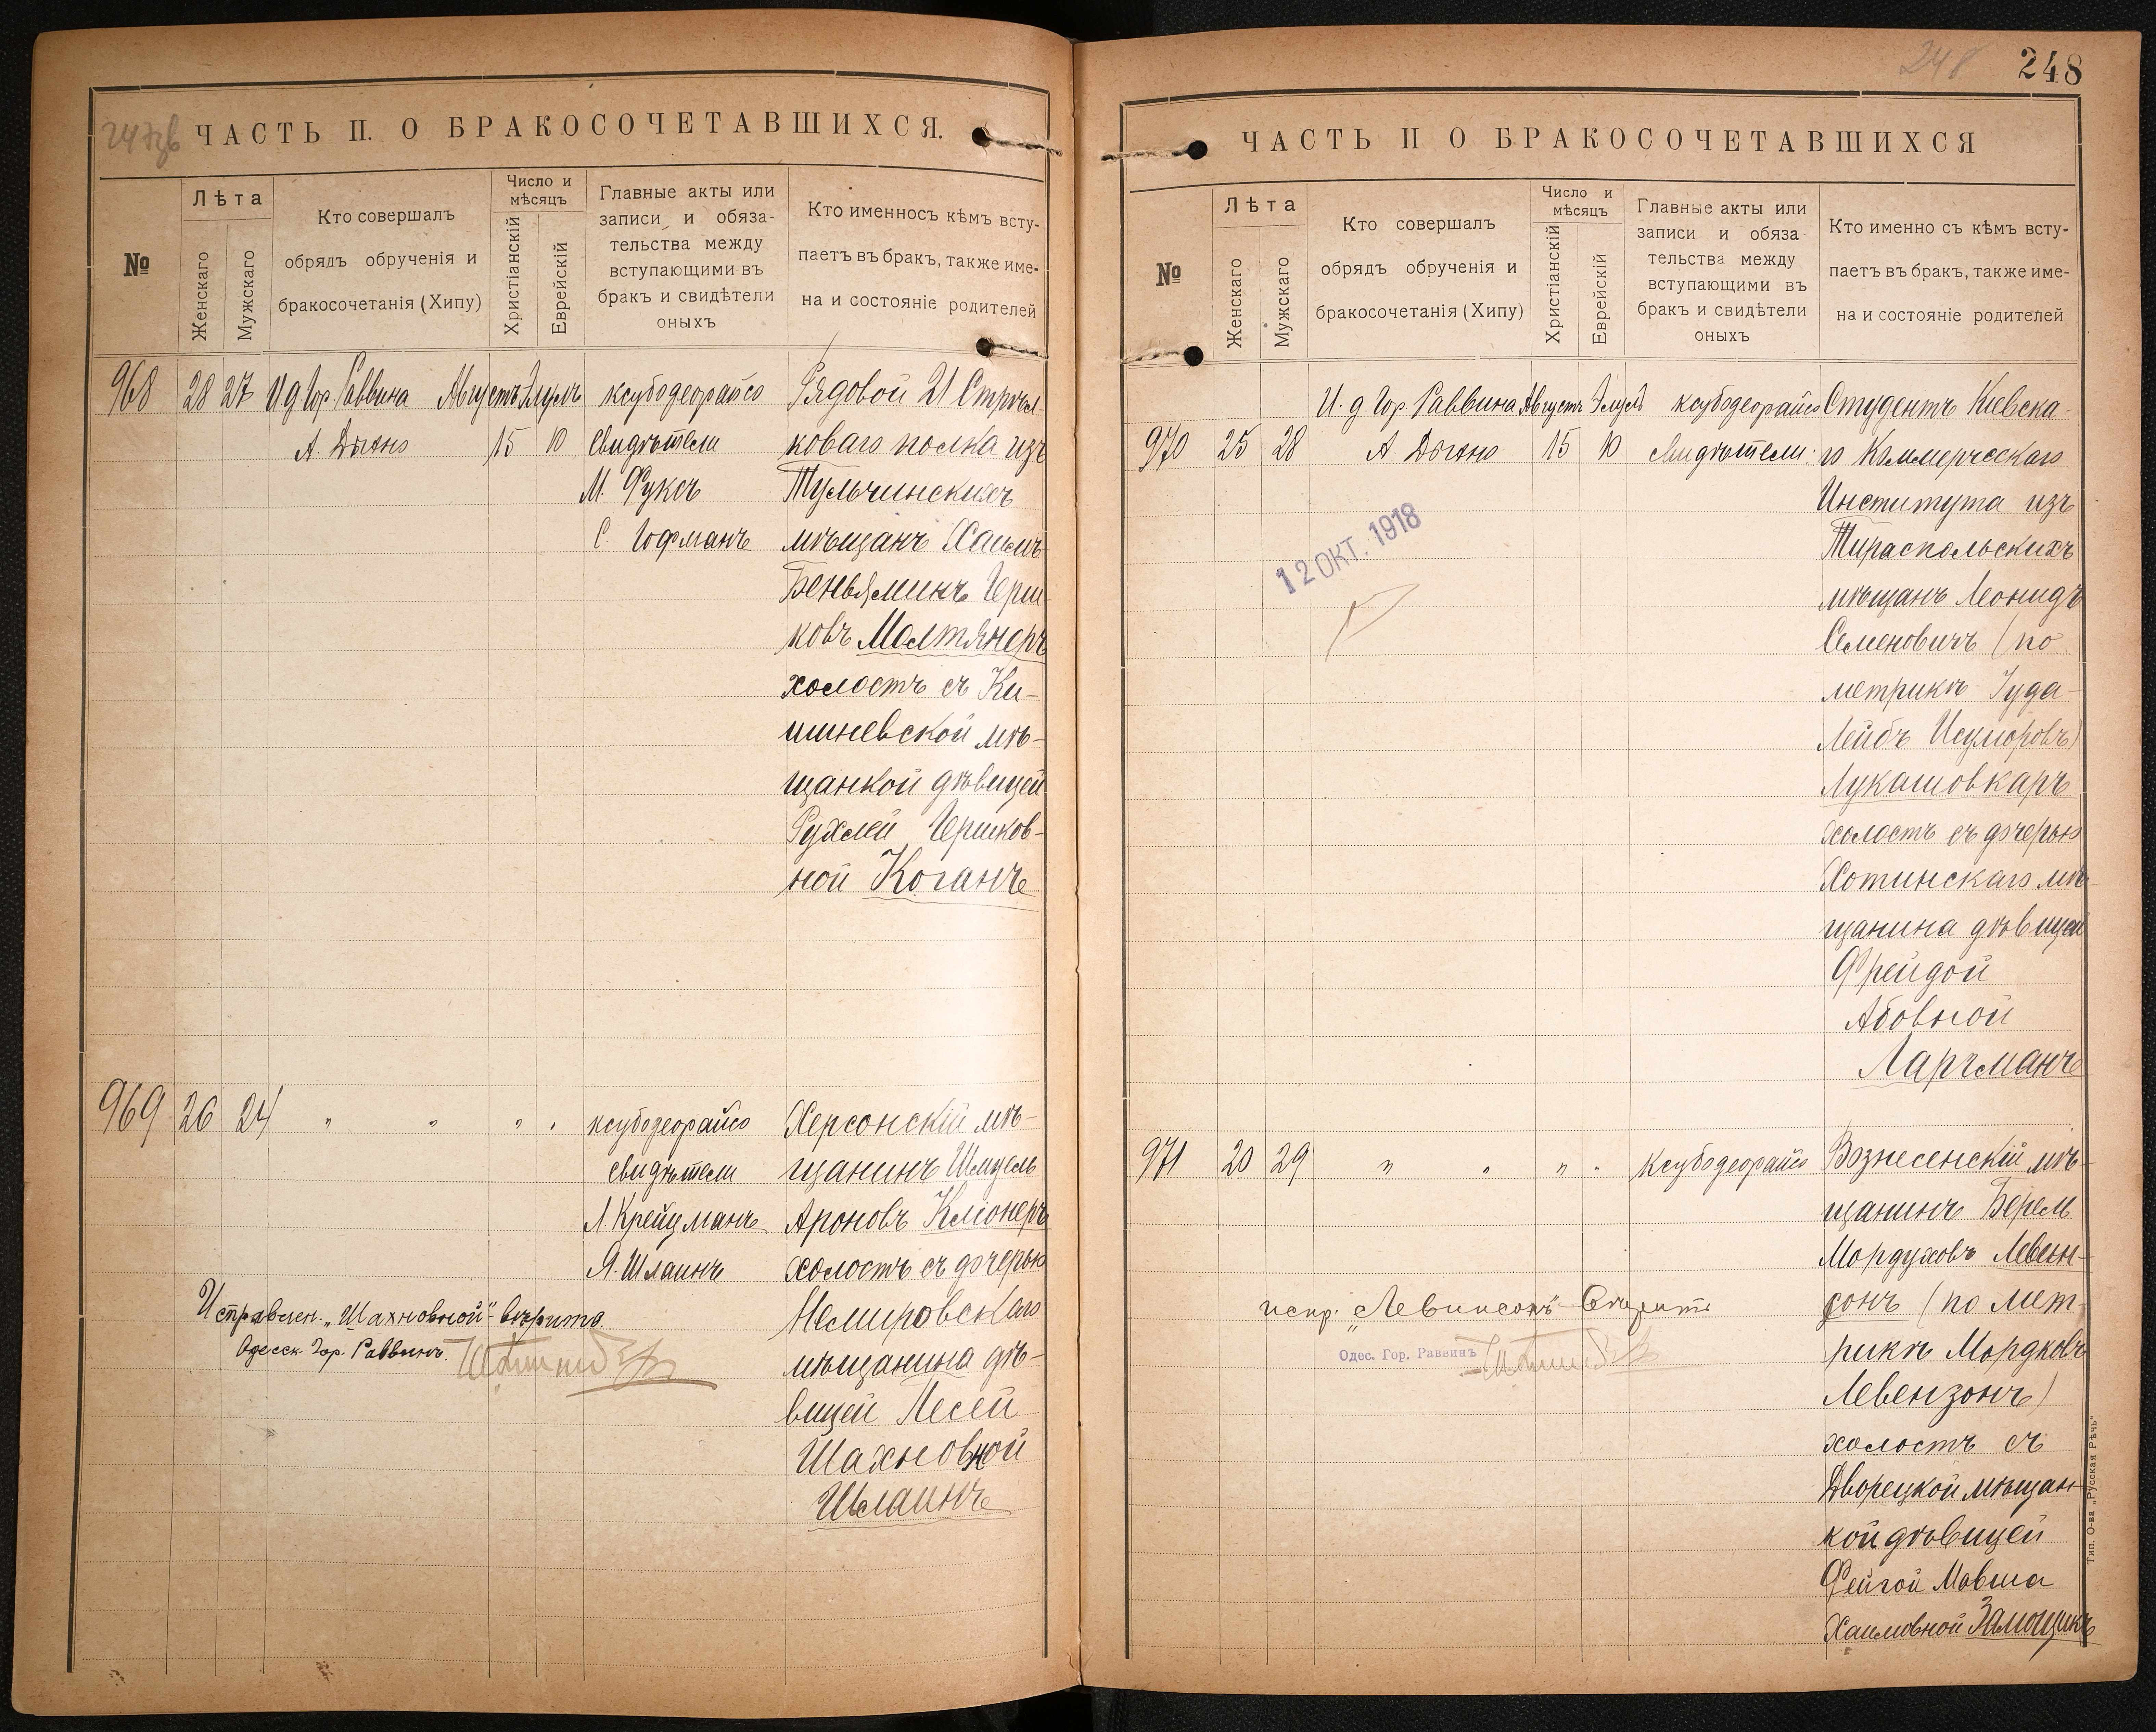 ЧАСТЬ II. О БРАКОСОЧЕТАВШИХСЯ.
№
Лѣта
Женскаго
Мужскаго
Кто совершалъ
обрядъ обрученія и
бракосочетанія (Хипу)
Число и
мѣсяцъ
Христіанскій
Еврейскій
Главные акты или
записи и обяза-
тельства между
вступающими въ
бракъ и свидѣтели
оныхъ
Кто именносъ кѣмъ всту-
паетъ въ бракъ, также име-
на и состояніе родителей
968
28
27
И д Гор. Раввина
А. Дыхно
Августъ
15
Элулъ
10
ксубодеорайсо
Свидѣтели
М. Фуксъ
С. Гофманъ
Рядовой 21 Стрѣл-
коваго полка изъ
Тульчинскихъ
мѣщанъ Хаимъ
Беньяминъ Герш-
ковъ Молтянеръ
холостъ съ Ки-
шиневской мѣ-
щанкой дѣвицей
Рухлей Гершков-
ной Коганъ
969
26
24
" " " "
ксубодеорайсо
свидѣтели
Л Крейцманъ
Я. Шлаинъ
Херсонскій мѣ-
щанинъ Шмуель
Ароновъ Кліонеръ
холостъ съ дочерью
Немировскаго
мѣщанина дѣ-
вицей Лесей
Шахновной
Шлаинъ
Исправлен. „Шахновной"- вѣрить.
Одесск. Гор. Раввинъ
248
248
ЧАСТЬ II О БРАКОСОЧЕТАВШИХСЯ
№
Лѣта
Женскаго
Мужскаго
Кто совершалъ
обрядъ обрученія и
бракосочетанія (Хипу)
Число и
мѣсяцъ
Христіанскій
Еврейскій
Главные акты или
записи и обяза
тельства между
вступающими въ
бракъ и свидѣтели
оныхъ
Кто именно съ кѣмъ всту-
паетъ въ бракъ, также име-
на и состояніе родителей
970
25
28
И. д Гор. Раввина
А Дыхно
Августъ
15
Элулъ
10
ксубодеорайсо
свидѣтели.
12 ОКТ. 1918
Студентъ Кіевска-
го Коммерческаго
Института изъ
Тираспольскихъ
мѣщанъ Леонидъ
Семеновичъ (по
метрикѣ Іуда-
Лейбъ Исумеровъ)
Лукашовкаръ
холостъ съ дочерью
Хотинскаго мѣ-
щанина дѣвицей
Фрейдой
Абовной
Ларгманъ
971
20
29
" " " "
Ксубодеорайсо
Вознесенскій мѣ-
щанинъ Берель
Мордуховъ Левен-
сонъ (по мет-
рикѣ Мордковъ
Левензонъ)
холостъ съ
Дворецкой мѣщан-
кой дѣвицей
Фейгой Мовша
Хаимовной Замощикъ
испр. „Левинсонъ"
Одес. Гор. Раввинъ
Тип. О-ва „Русская Рѣчь"